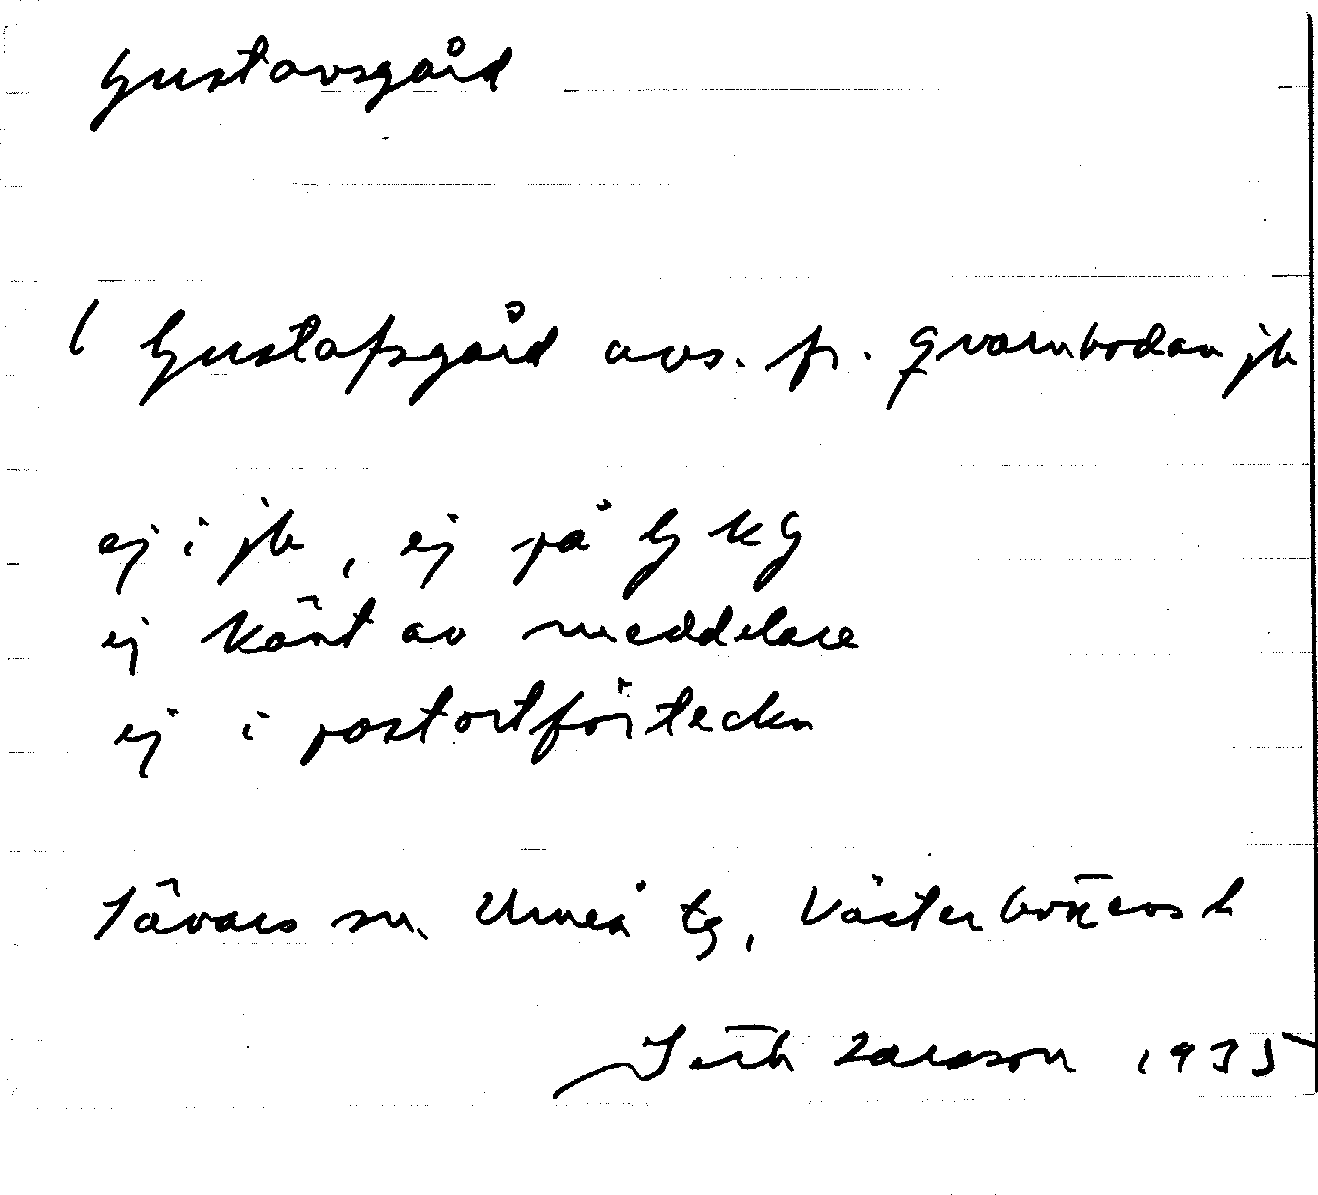 Gustavsgård
( Gustafsgård avs. fr. Qvarnbodan jb
ej i jb, ej på GKG
ej känt av meddelare
ej i postortförteckn
sn. Umeå tg, Västerbottens l
Larsson 1935